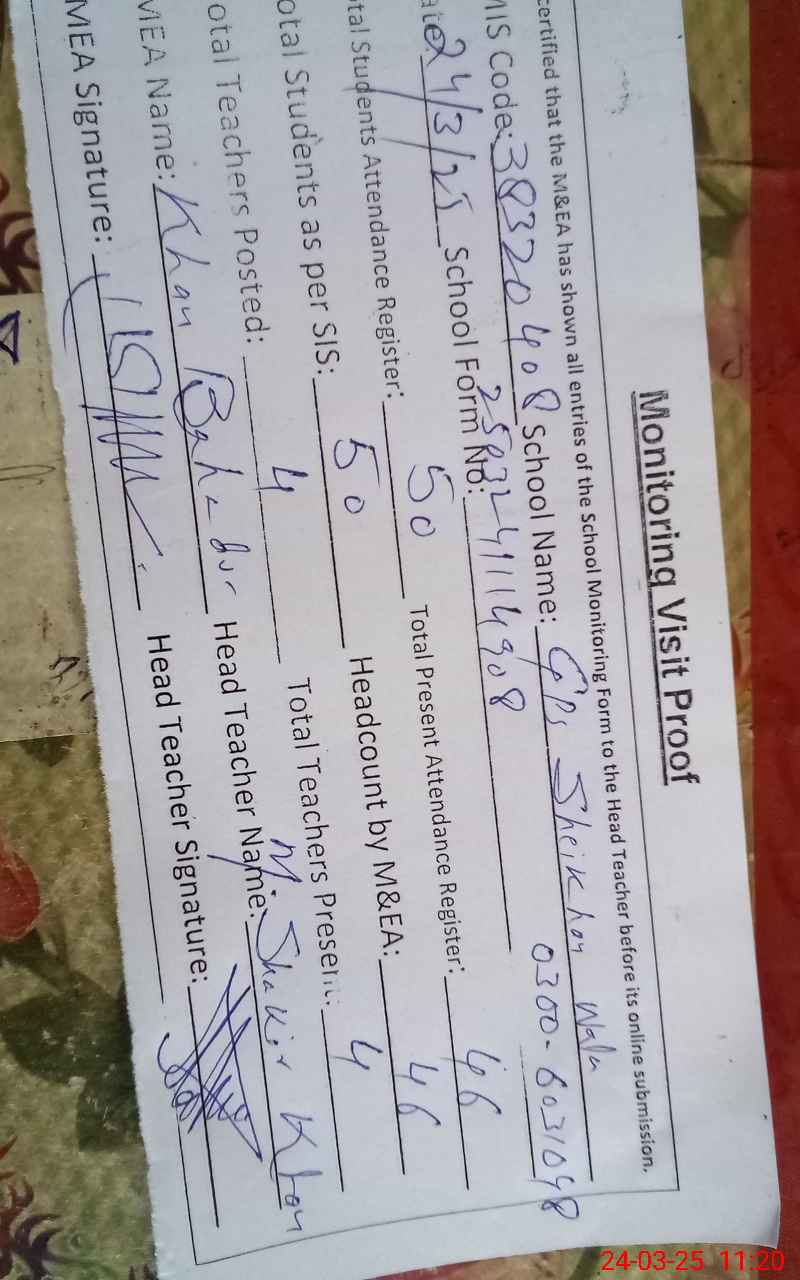 Monitoring Visit Proof
certified that the M&EA has shown all entries of the School Monitoring Form to the Head Teacher before its online submission.
MIS Code: 38320408 School Name: GPS Sheikhan Wala
0300-6031098
ate 24/3/25 School Form No:
tal Students Attendance Register: 50 Total Present Attendance Register: 46
otal Students as per SIS: 50 Headcount by M&EA: 46
otal Teachers Posted: 4 Total Teachers Present: 4
MEA Name: Khan Bahadur Head Teacher Name: M. Shakir Khan
MEA Signature: Head Teacher Signature:
24-03-25 11:20